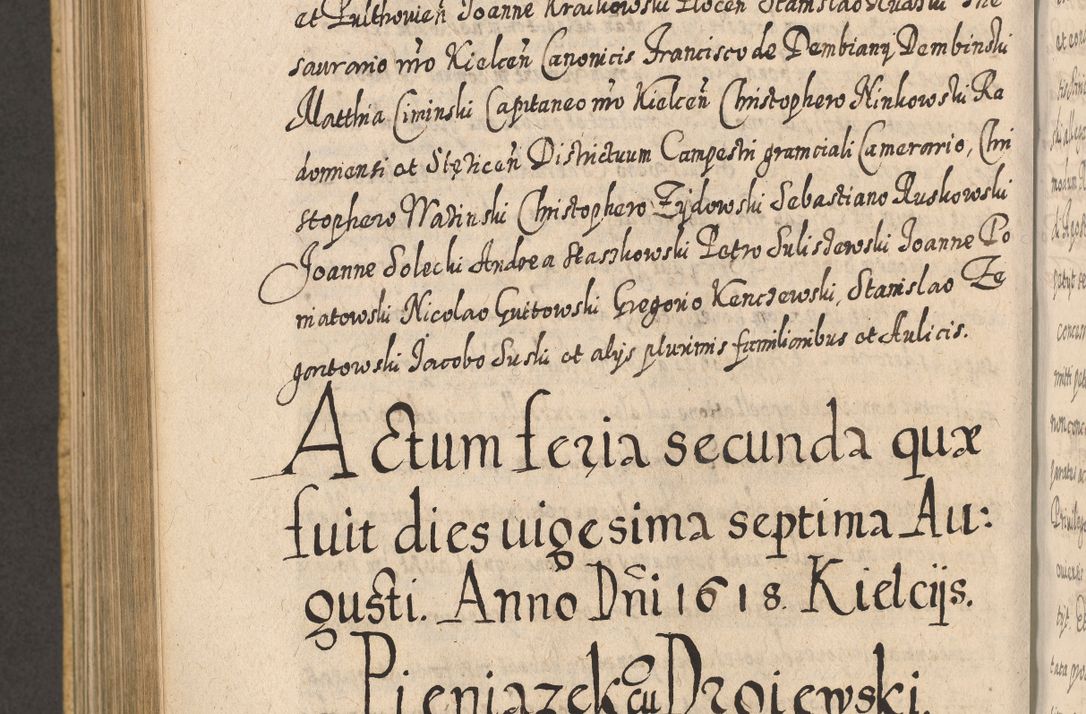 et Pulthovien̄ Joanne Kraikowski Plocen̄ Stanislao
saurario nr̄o Kielcen̄ Canonicis Francisco de Dembiany Dembinski
Matthia Ciminski Capitaneo nr̄o Kielcen̄ Christophero Ninkowski Ra
domiensi et Stężicen̄ Districtuum Campestri granciali Camerario, Chri
stophero Wasinski Christophero Zydowski Sebastiano Ruskowski
Joanne Solecki Andrea Staszkowski Petro Sulistewski Joanne Po
niatowski Nicolao Gutowski Gregorio Kenczewski, Stanislao Ze
gartowski Jacobo Suski et alijs plurimis familiaribus et Aulicis.
Actum feria secunda quæ
fuit dies uigesima septima Au:
gusti. Anno Dn̄i 1618. Kielcijs.
Pieniązek cū Drojewski.